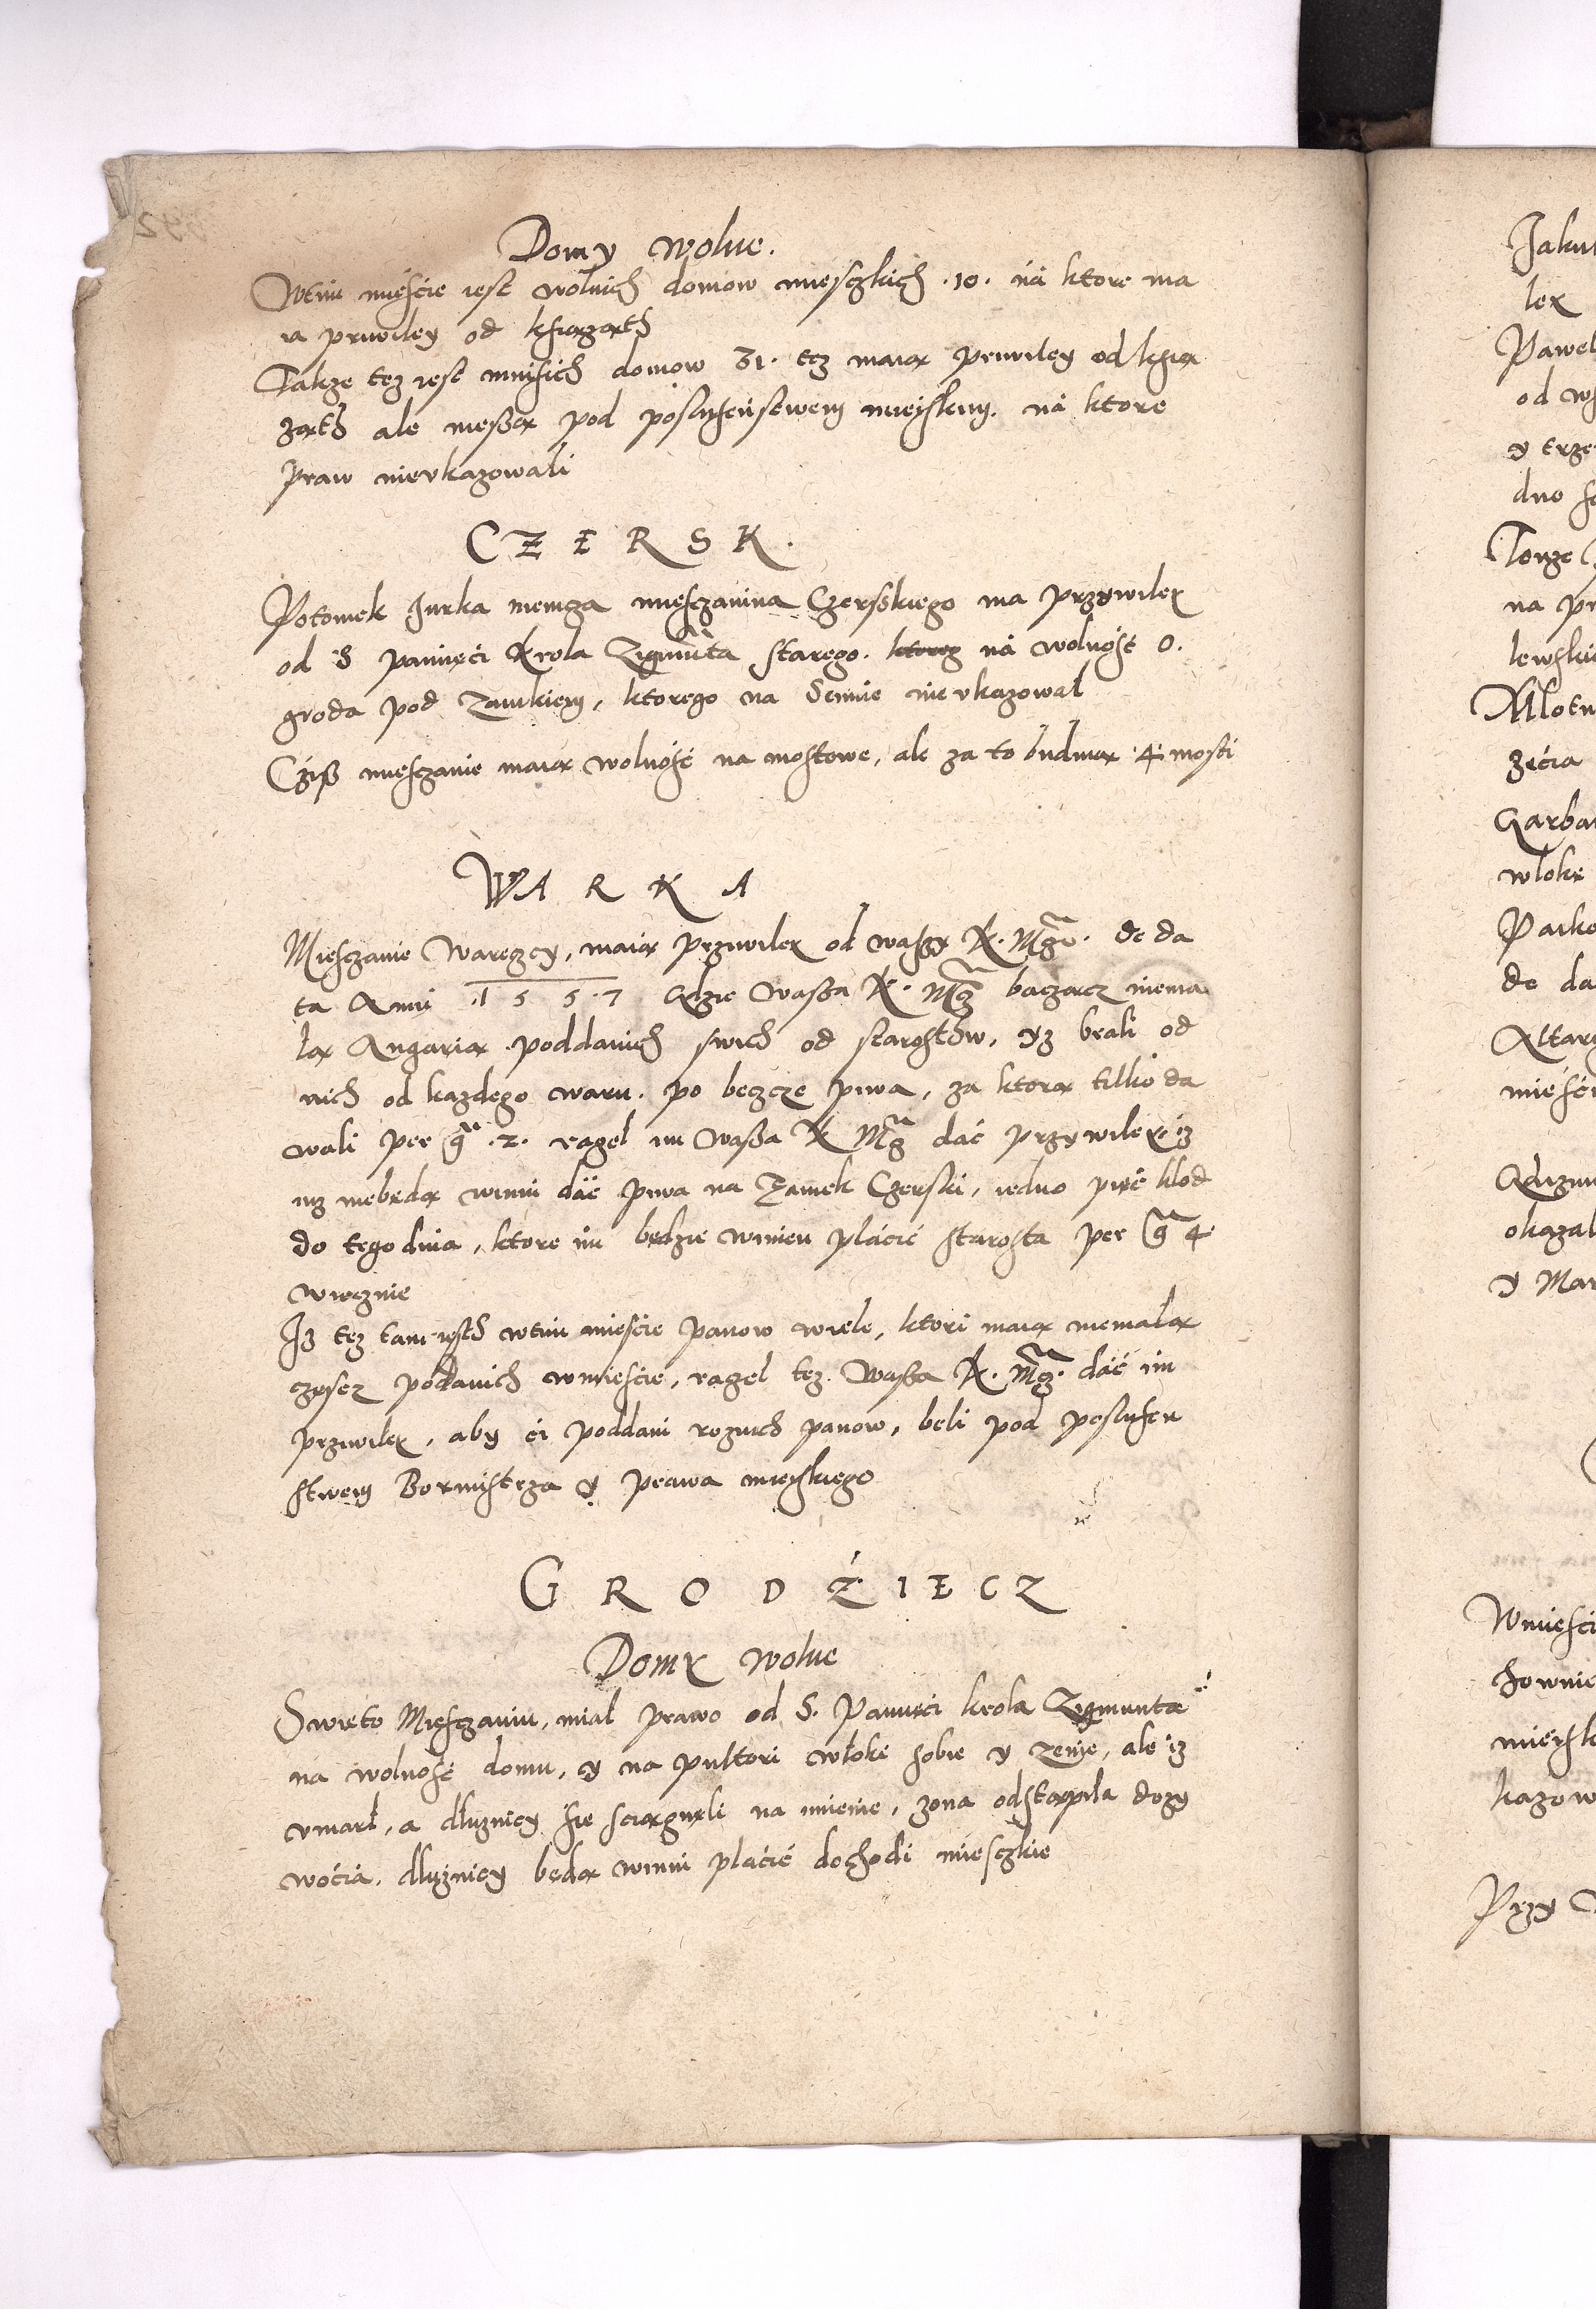 Domy wolne.
Wtim mieście iest wolnich domow mieyszkich .10. ná ktore ma
ią priwiley od ksiąząth
Takze tez iest mnisich domow 31. tez maią priwiley od ksią
ząth ale nieszą pod poslusenstwem mieyskim. ná ktore
praw nieukazowali
CZERSK.
Potomek Jurka niemcza miesczanina Czerskiego ma przywiley
od S pamięci Krola Zigmunta starego. ktoreg ná wolnóśc o.
groda pod zamkiem, ktorego na Semie nie ukazowal
Cziß miesczanie maią wolnośč na mostowe, ale za to buduią 4 mosti
WARKA
Miesczanie Warezcy, maią przywiley od waszy K. Mczi. de da
ta Anni 1557 Gdzie Wasza K. Mcz baczącz niema
lą Angarią poddanich swich od starosthow, yz brali od
nich od kazdego waru. po beczcze piwa, za ktorą tilko da
wali per gr .2. raczel im Wasza K Mcz dać przywiley iz
iuz niebędą winni dać piwa na Zamek Czerski, iedno pięć klod
do tego dnia, ktore im będzie winien plácić starosta per gr 4
wiecznie
Iz tez tam iesth wtim miescie panow wiele, ktori maią niemalą
częscz podanich wmiescie, raczel tez Wasza K. Mcz. dáć im
przywiley, aby ci poddani roznich panow, beli pod poslusen
stwem Bormistrza y prawa mieyskiego
GRODŹIECZ
Domy wolne
Swięto Miesczanin, mial prawo od S. Pamięci krola Zigmunta
na wolnośc domu, y na pultori wloki sobie y zenie, ale iz
umarl, a dluznicy sie sciągnęli na imienie, zona odstąpila dozy
wócia, dluznicy będą winni placić dochodi miesczkie
Jaku
ley
Pawel
od ws
y trze
dno
Tomze
na pr
lewski
Mlotn
zęcia
Garba
wlokę
de da
mieśc
okazal
y Mar
Wmieści
miersk
kazow
Przy